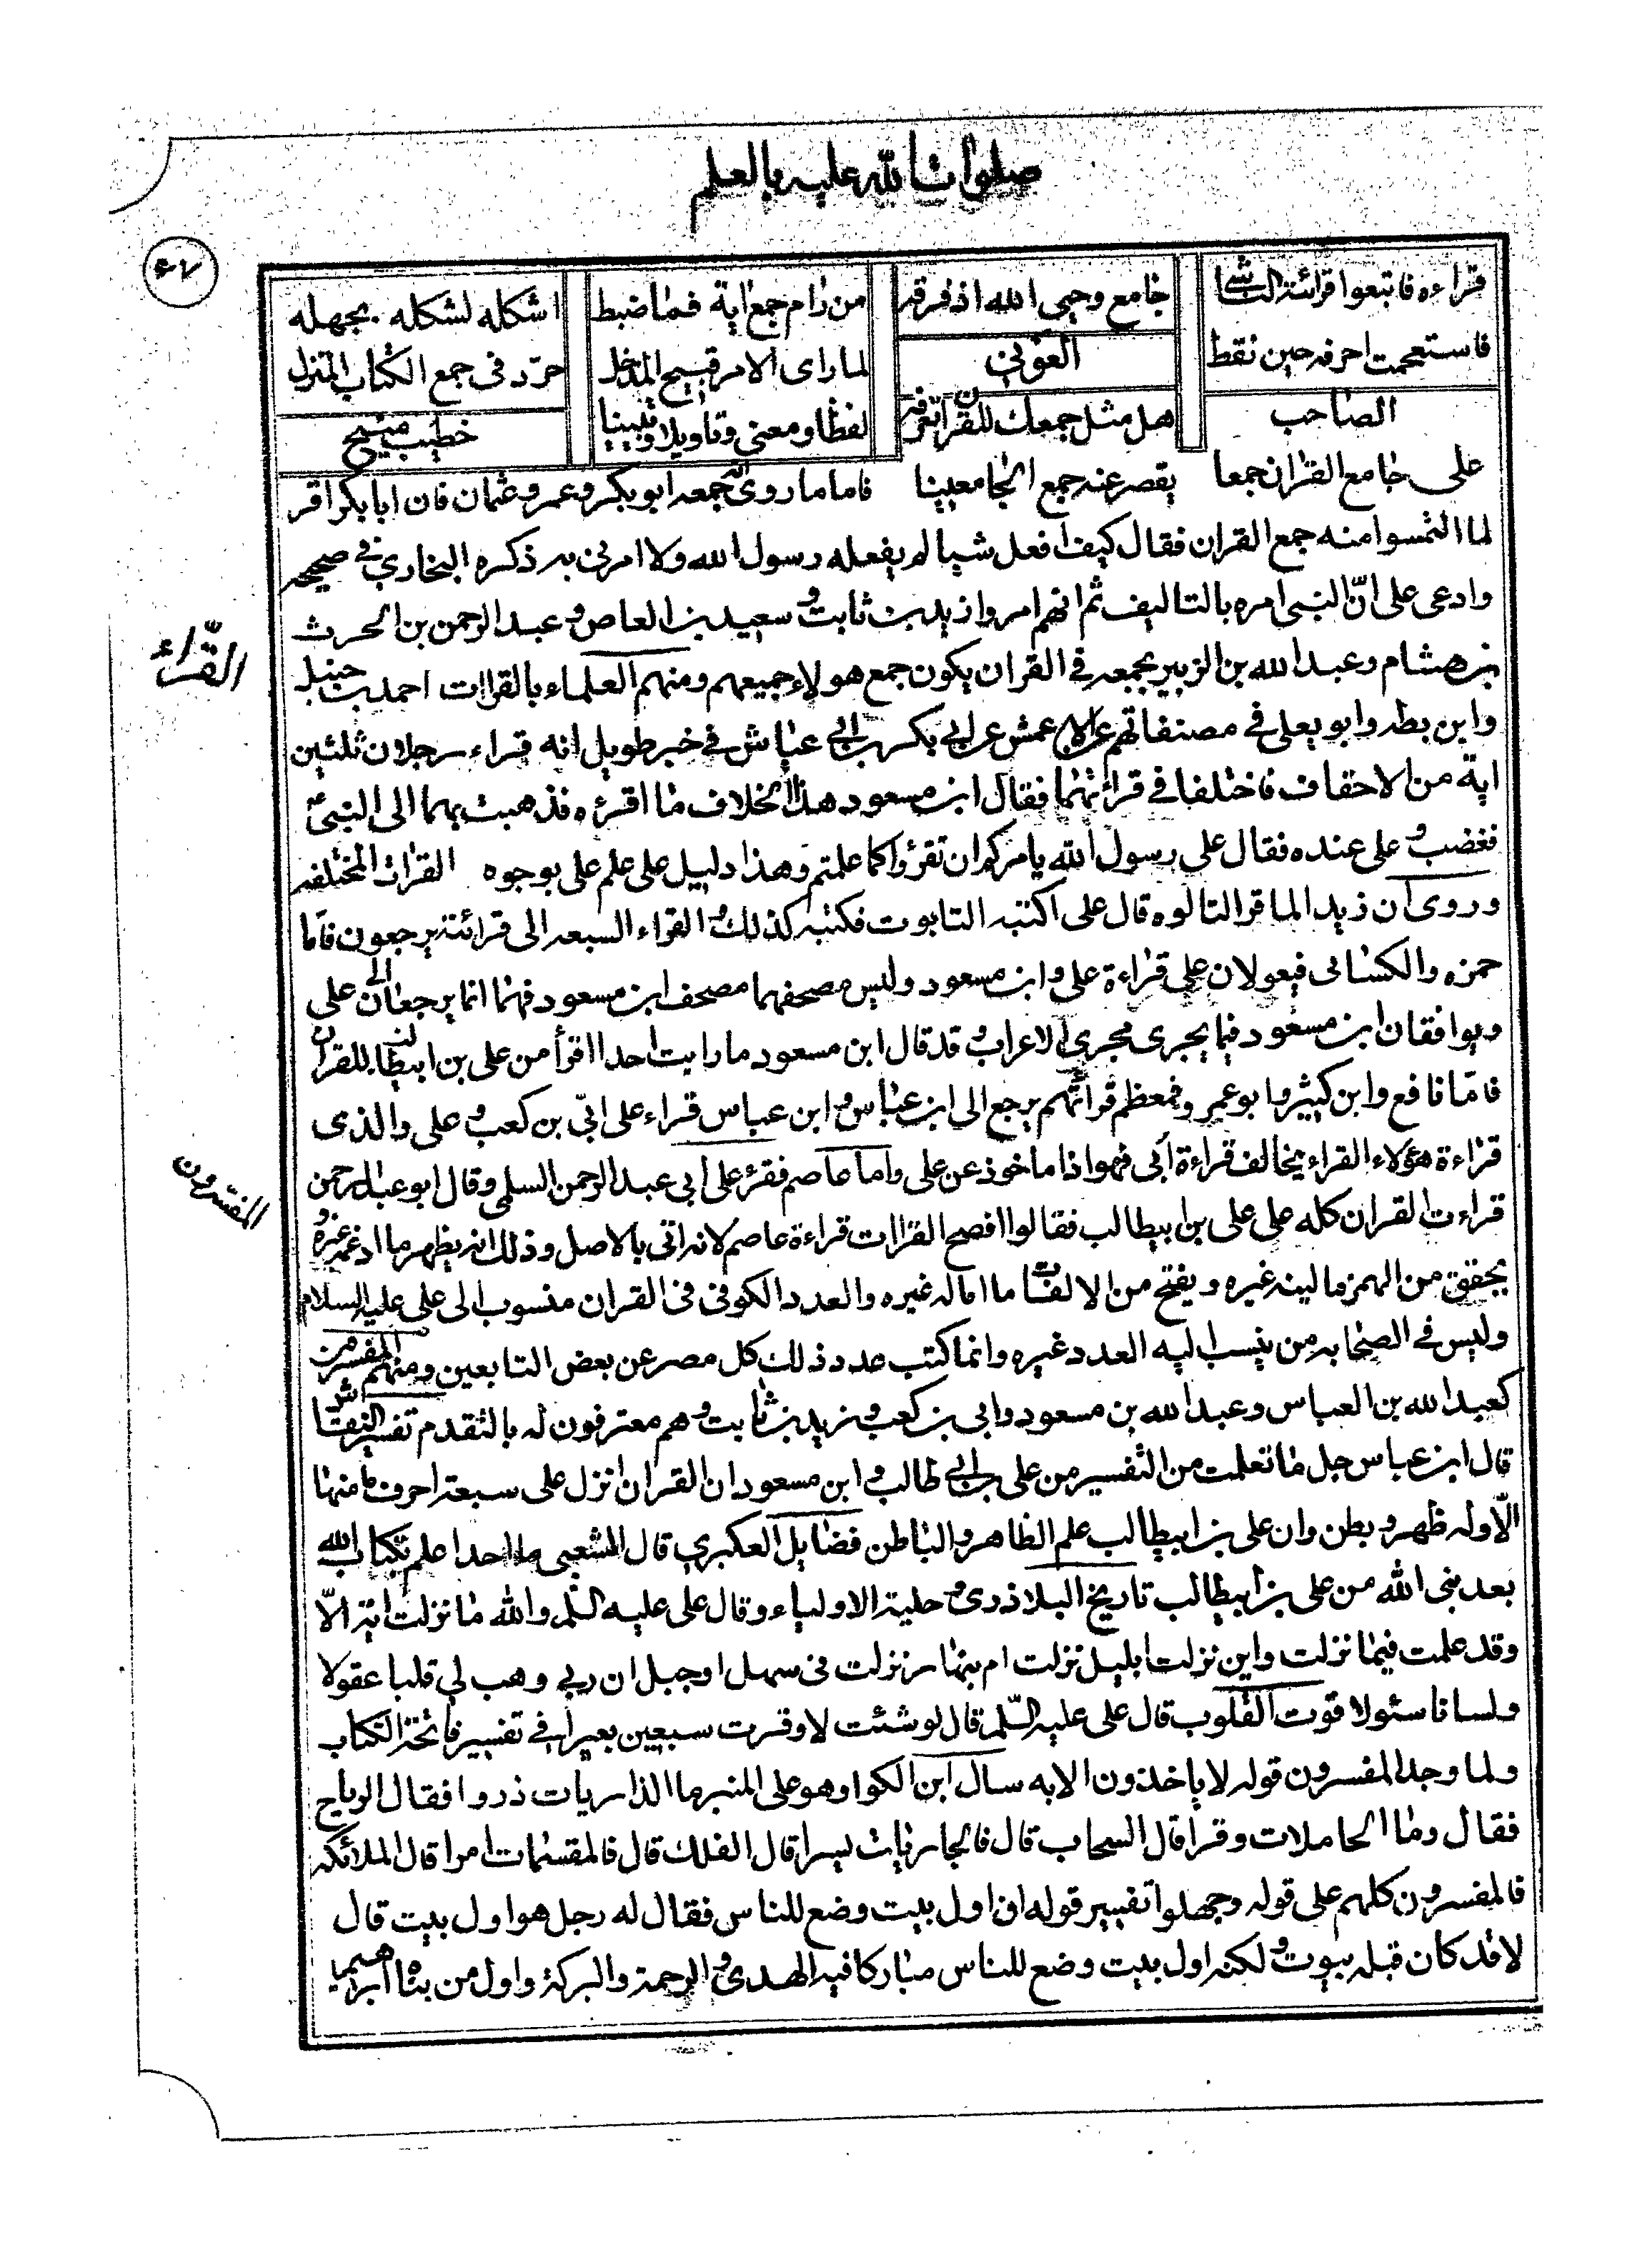 صلوات الله عليه بالعلم
٤٧
قراءه فاتبعوا قرائته الناشى | جامع وحى الله اذ فرقه | من رام جمع اية فما ضبط | اشكله لشكله بجهله
فاستعجمت احرفه حين نقط | العونى | لما راى الامر قبيح المدخل | حرد فى جمع الكتاب المنزل
الصاحب | هل مثل جمعك للقران تعرفه | لفظا ومعنى وتاويلا وتبيينا | خطيب منبج
على جامع القران جمعا يقصر عنه جمع الجامعينا فاما ما روى انه جمعه ابو بكر وعمر وعثمان فان ابا بكر اقر
لما التمسوا منه جمع القران فقال كيف افعل شيا لم يفعله رسول الله ولا امرنى به ذكره البخارى فى صحيحه
وادعى على انّ النبى امره بالتاليف ثم انهم امروا زيد بن ثابت وسعيد بن العاص وعبد الرحمن بن الحرث
القرّاء
بن هشام وعبد الله بن الزبير بجمعه فى القران يكون جمع هولاء جميعهم ومنهم العلماء بالقراات احمد بن حنبل
وابن بطه وابو يعلى فى مصنفاتهم عن الاعمش عن ابى بكر بن ابى عياش فى خبر طويل انه قراء رجلان ثلثين
اية من الاحقاف فاختلفا فى قرائتهما فقال ابن مسعود هذا الخلاف ما اقرؤه فذهبت بهما الى النبىؐ
فغضب وعلى عنده فقال على رسول الله يامركم ان تقرؤا كما علمتم وهذا دليل على علم على بوجوه القراات المختلفه
وروى ان زيد الما قرا التالوه قال على اكتبه التابوت فكتبه كذلك والقراء السبعه الى قرائته يرجعون فاما
حمزه والكسائى فيعولان على قراءة على وابن مسعود وليس مصحفهما مصحف ابن مسعود فهما انما يرجعان الى على
ويوافقان ابن مسعود فيما يجرى مجرى الاعراب وقد قال ابن مسعود ما رايت احدا اقرأ من على بن ابيطالب للقران
فامّا نافع وابن كثير وابو عمرو فمعظم قرائتهم يرجع الى ابن عباس وابن عباس قراء على ابىّ بن كعب وعلى والذى
المفسرون
قراءة هؤلاء القراء يخالف قراءة أبى فهو اذا ماخوذ عن على واما عاصم فقرئ على ابى عبد الرحمن السلمى وقال ابو عبد الرحمن
قراءت القران كله على على بن ابيطالب فقالوا افصح القراات قراءة عاصم لانه اتى بالاصل وذلك انه يظهر ما ادغمه غيره و
يحقق من الهمز ما لينه غيره ويفتح من الالفات ما اماله غيره والعدد الكوفى فى القران منسوب الى على عليه السلام
وليس فى الصحابه من ينسب اليه العدد غيره وانما كتب عدد ذلك كل مصر عن بعض التابعين ومنهم المفسرون
كعبد الله بن العباس وعبد الله بن مسعود وابى بن كعب وزيد بن ثابت وهم معترفون له بالتقدم تفسير النقاش
قال ابن عباس جل ما تعلمت من التفسير من على بن ابى طالب وابن مسعود ان القران انزل على سبعة احرف ما منها
الّا وله ظهر وبطن وان على بن ابيطالب علم الظاهر والباطن فضايل العكبرى قال الشعبى ما احدا علم بكتاب الله
بعد نبى الله من على بن ابيطالب تاريخ البلاذرى وحلية الاولياء وقال على عليه السّلم والله ما نزلت اية الّا
وقد علمت فيما نزلت واين نزلت ابليل نزلت ام بنهار نزلت فى سهل او جبل ان ربى وهب لى قلبا عقولا
ولسانا سئولا قوت القلوب قال على عليه السّلم قال لو شئت لاوقرت سبعين بعيرا فى تفسير فاتحة الكتاب
ولما وجد المفسرون قوله لا ياخذون الا به سال ابن الكوا وهو على المنبر ما الذاريات ذروا فقال الرياح
فقال وما الحاملات وقرا قال السحاب قال فالجاريات يسرا قال الفلك قال فالمقسمات امرا قال الملائكه
فالمفسرون كلهم على قوله وجهلوا تفسير قوله ان اول بيت وضع للناس فقال له رجل هو اول بيت قال
لا قد كان قبله بيوت ولكنه اول بيت وضع للناس مباركا فيه الهدى والرحمة والبركة واول من بناه ابراهيم